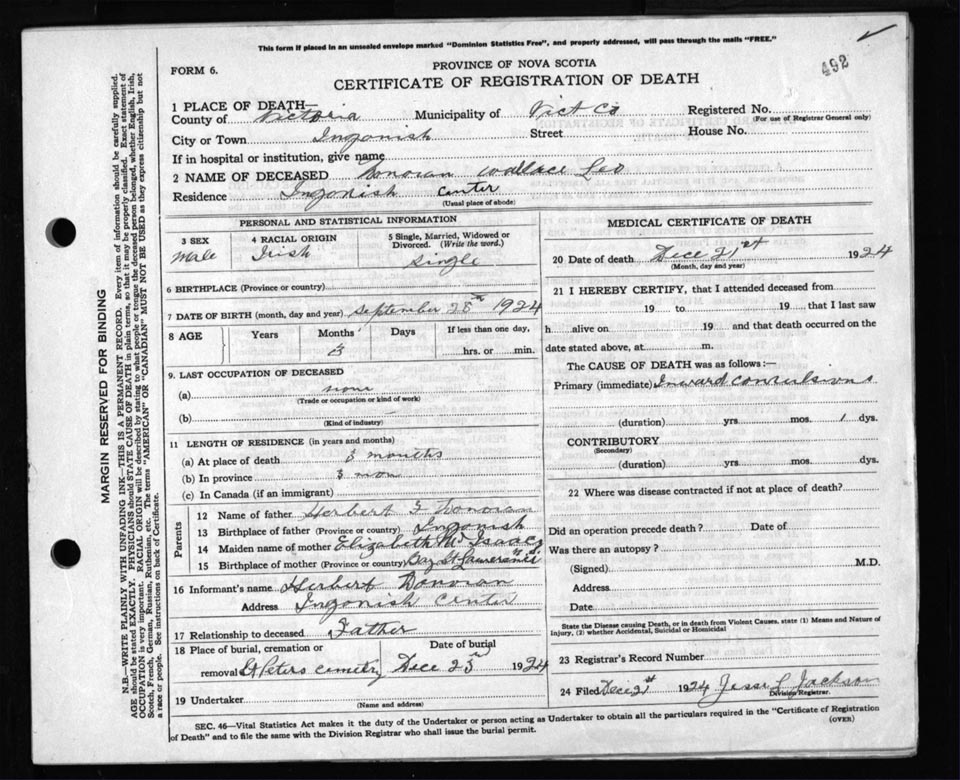 This form if placed in an unsealed envelope marked "Dominion Statistics Free", and properly addressed, will pass through the mails "FREE."
492
FORM 6.
PROVINCE OF NOVA SCOTIA
CERTIFICATE OF REGISTRATION OF DEATH
1 PLACE OF DEATH—
County of Victoria Municipality of Vict Co Registered No.
(For use of Registrar General only)
City or Town Ingonish Street House No.
If in hospital or institution, give name
2 NAME OF DECEASED Donovan Wallace Leo
Residence Ingonish Center
(Usual place of abode)
PERSONAL AND STATISTICAL INFORMATION
3 SEX 4 RACIAL ORIGIN 5 Single, Married, Widowed or Divorced. (Write the word.)
Male Irish Single
6 BIRTHPLACE (Province or country)
7 DATE OF BIRTH (month, day and year) September 28th 1924
8 AGE Years Months Days If less than one day,
3 hrs. or min.
9. LAST OCCUPATION OF DECEASED
(a) none
(Trade or occupation or kind of work)
(b)
(Kind of industry)
11 LENGTH OF RESIDENCE (in years and months)
(a) At place of death 3 months
(b) In province 3 mon
(c) In Canada (if an immigrant)
Parents
12 Name of father Herbert J Donovan
13 Birthplace of father (Province or country) Ingonish
14 Maiden name of mother Elizabeth Mc Isaac
15 Birthplace of mother (Province or country) Bay St Lawrence N.S.
16 Informant's name Herbert Donovan
Address Ingonish Center
17 Relationship to deceased Father
18 Place of burial, cremation or removal St Peters cemetry
Date of burial Dec 23 1924
19 Undertaker
(Name and address)
MEDICAL CERTIFICATE OF DEATH
20 Date of death Dece 21st 1924
(Month, day and year)
21 I HEREBY CERTIFY, that I attended deceased from
19 to 19 that I last saw
h alive on 19 and that death occurred on the
date stated above, at m.
The CAUSE OF DEATH was as follows:—
Primary (immediate) Inward convulsions
(duration) yrs mos. 1 dys.
CONTRIBUTORY
(Secondary)
(duration) yrs mos. dys.
22 Where was disease contracted if not at place of death?
Did an operation precede death? Date of
Was there an autopsy?
(Signed) M.D.
Address
Date
State the Disease causing Death, or in death from Violent Causes, state (1) Means and Nature of
Injury, (2) whether Accidental, Suicidal or Homicidal
23 Registrar's Record Number
24 Filed Dec 21st 1924 Jesse L Jackson
Division Registrar.
SEC. 46—Vital Statistics Act makes it the duty of the Undertaker or person acting as Undertaker to obtain all the particulars required in the "Certificate of Registration
of Death" and to file the same with the Division Registrar who shall issue the burial permit.
(OVER)
MARGIN RESERVED FOR BINDING
N.B.—WRITE PLAINLY WITH UNFADING INK—THIS IS A PERMANENT RECORD. Every item of information should be carefully supplied.
AGE should be stated EXACTLY. PHYSICIANS should STATE CAUSE OF DEATH in plain terms, so that it may be properly classified. Exact statement of
OCCUPATION is very important. RACIAL ORIGIN will be described by stating to what people or tongue the deceased person belonged, whether English, Irish,
Scotch, French, German, Russian, Ruthenian, etc. The terms "AMERICAN" or "CANADIAN" MUST NOT BE USED as they express citizenship but not
a race or people. See instructions on back of Certificate.